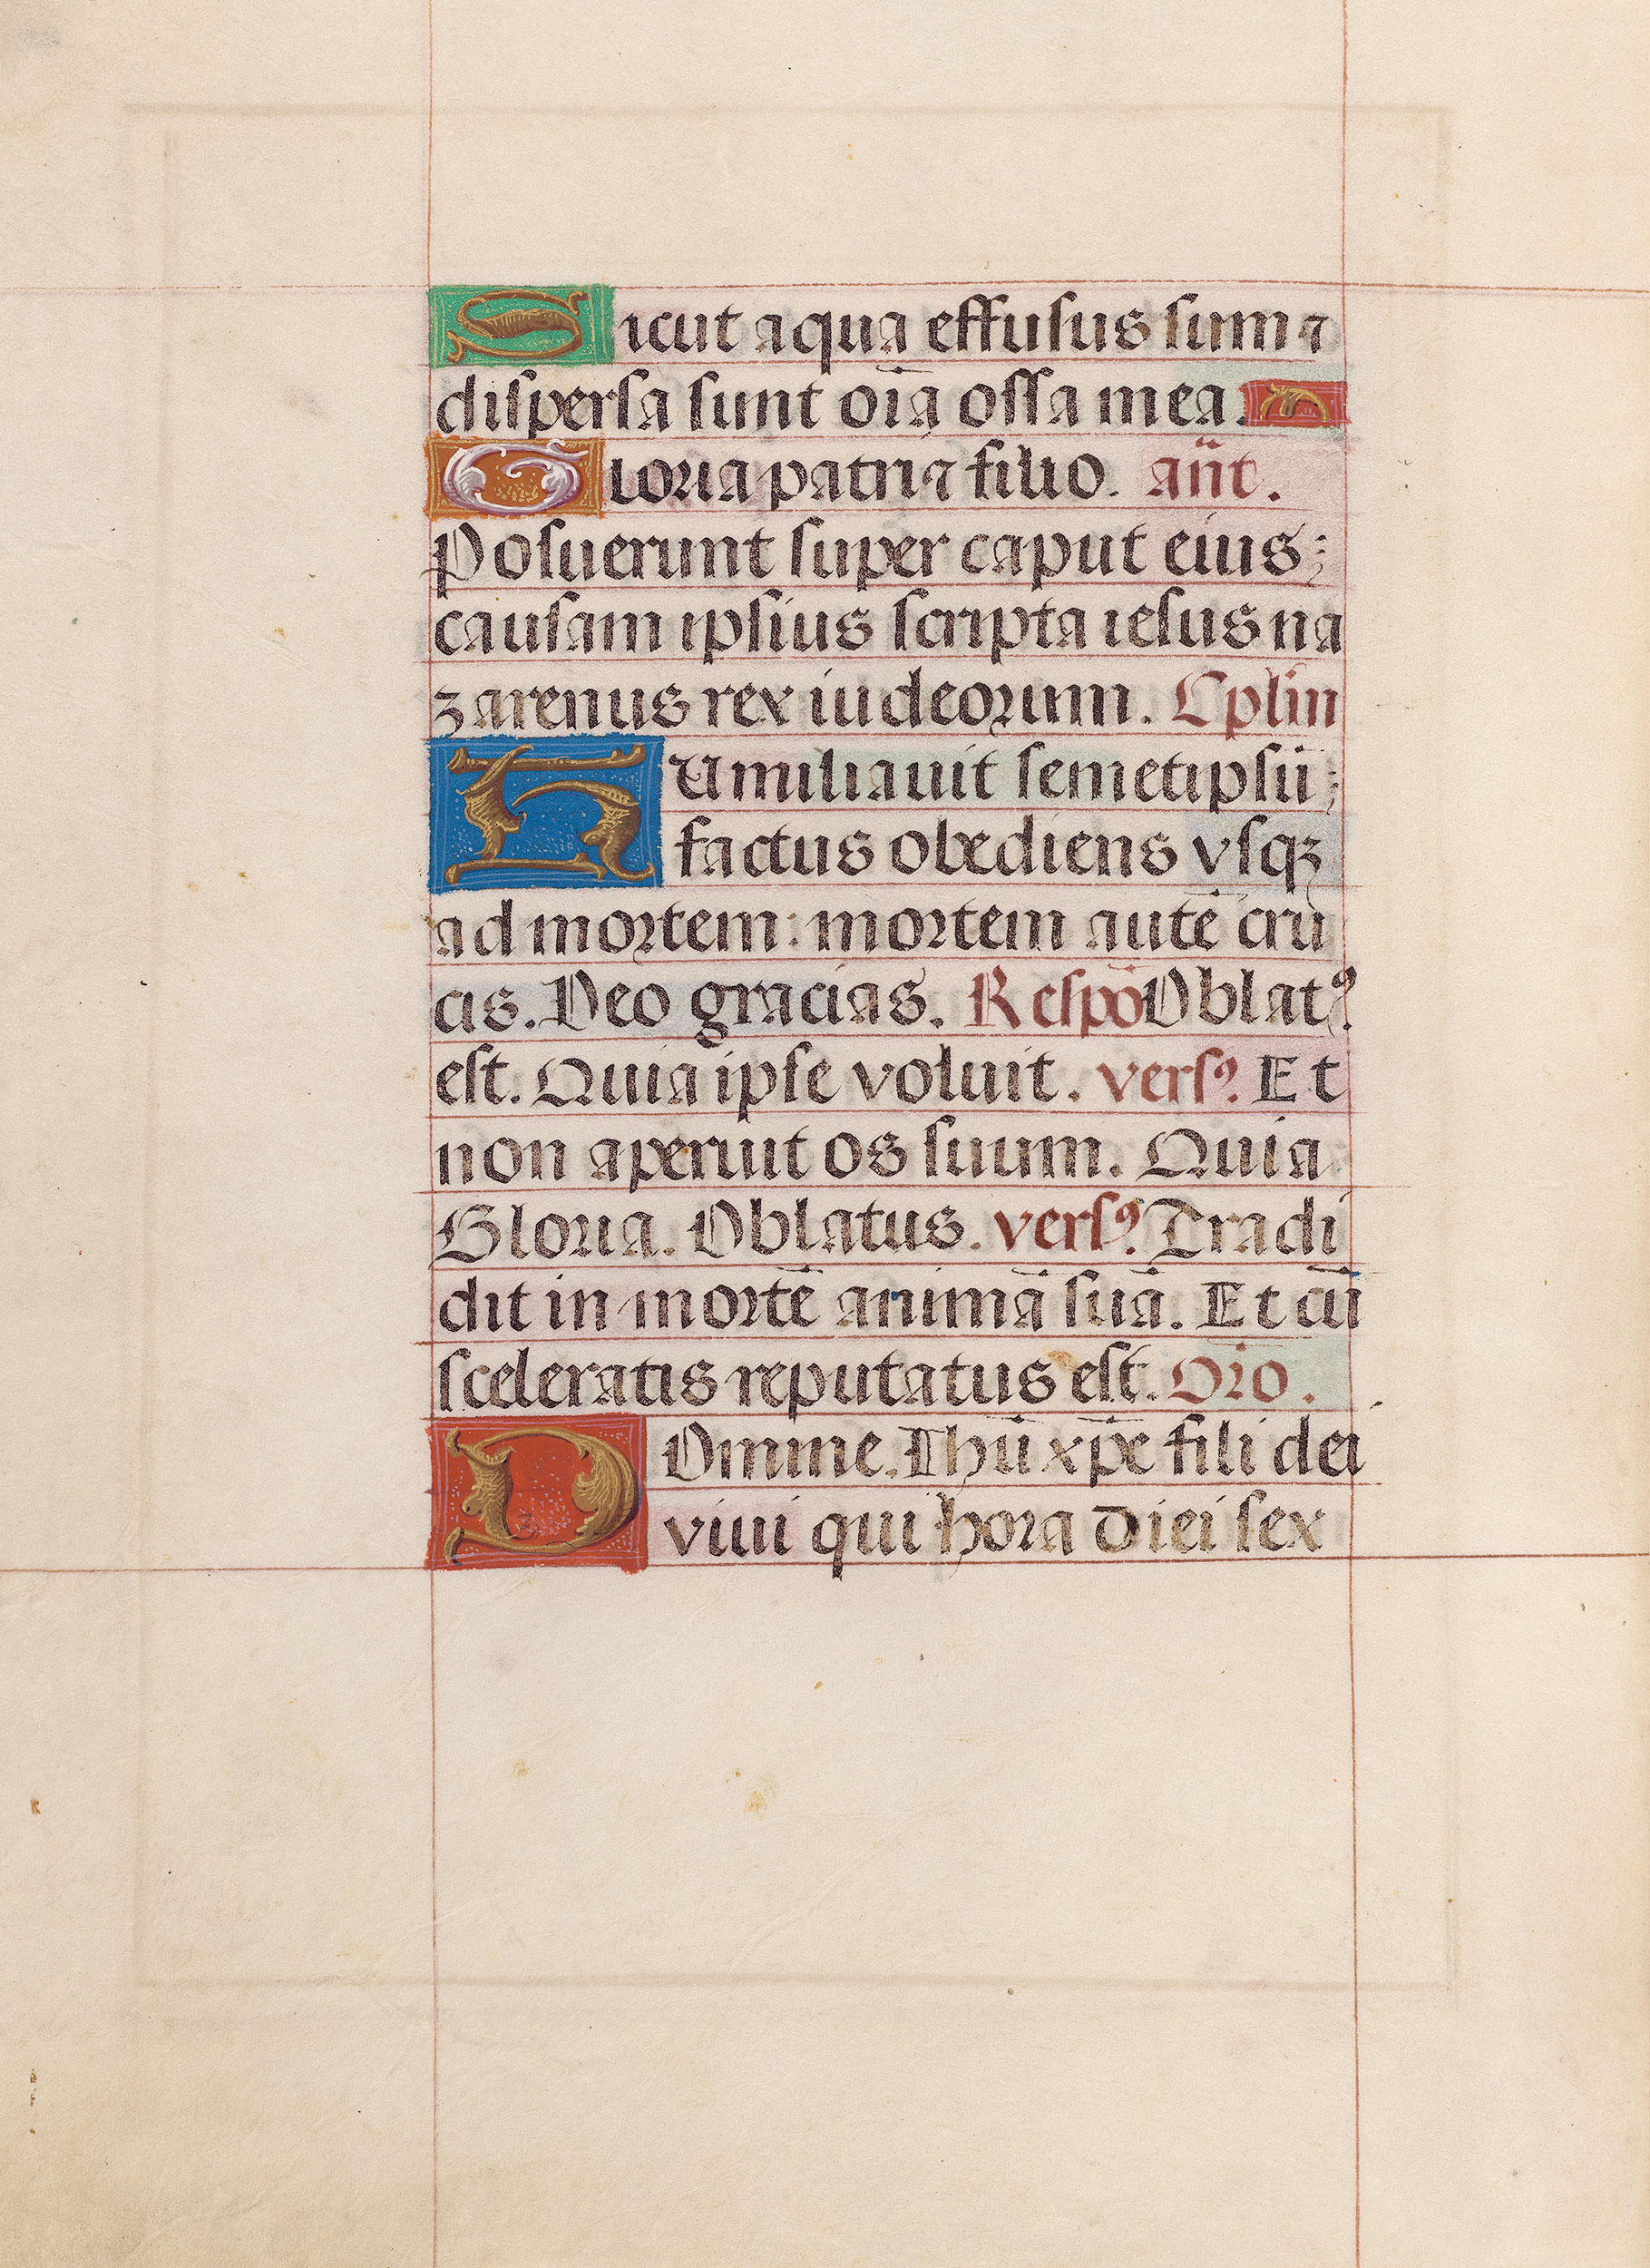 Sicut aqua effusus sum ⁊
dispersa sunt oīa ossa mea.
Gloria patri ⁊ filio. añt.
Posuerunt super caput eius:
causam ipsius scripta iesus na
zarenus rex iudeorum. Cplm
HUmiliauit semetipsū:
factus obediens vsqꝫ
ad mortem: mortem autē cru
cis. Deo gracias. Respō Oblatꝰ
est. Quia ipse voluit. versꝰ. Et
non aperuit os suum. Quia
Gloria. Oblatus. versꝰ. Tradi
dit in mortē animā suā. Et cū
sceleratis reputatus est. Oro.
DOmine. Ihū xp̄e fili dei
viui qui hora diei sex